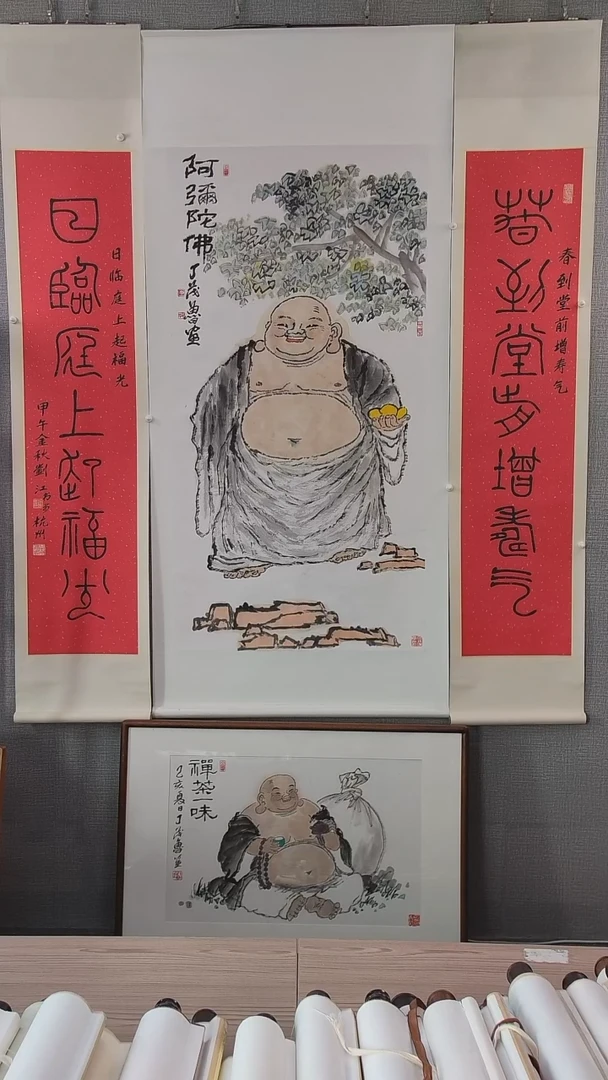 春到堂前增壽气
春到堂前增寿气
阿彌陀佛
丁茂魯画
日臨庭上起福光
日临庭上起福光
甲午金秋劉江书于杭州
禪茶一味
己亥夏日丁茂魯画